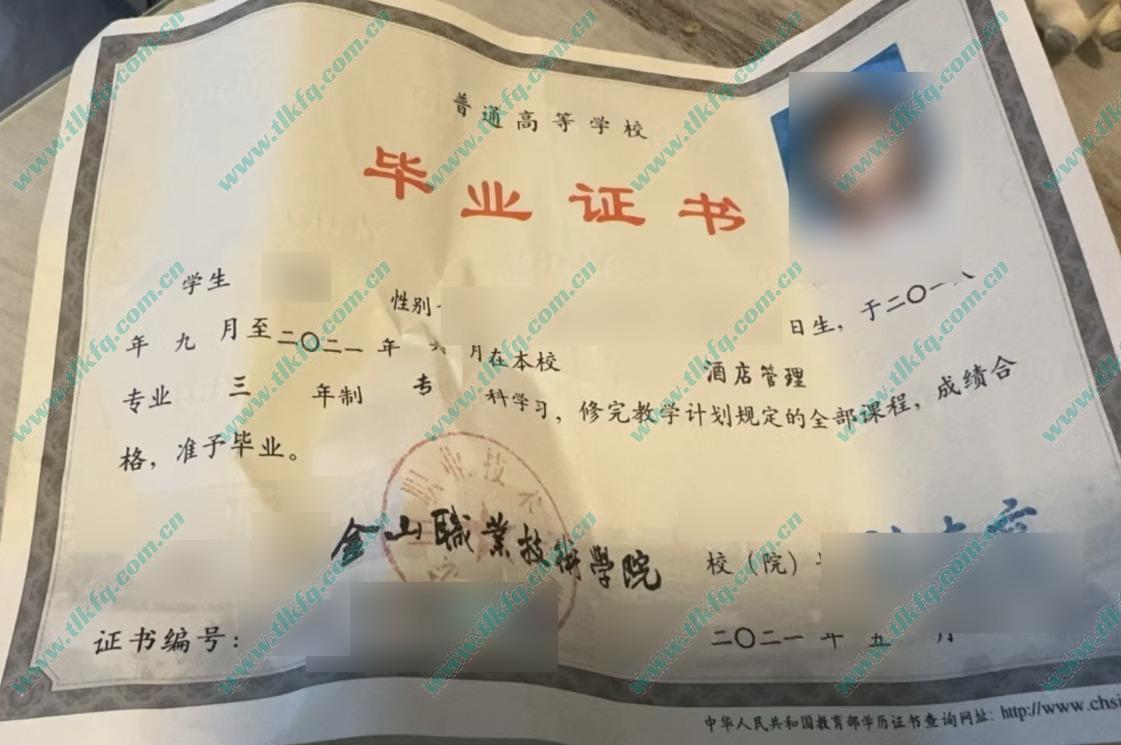 普通高等学校
毕业证书
学生 性别 日生，于二〇一八
年九月至二〇二一年六月在本校 酒店管理
专业三年制专科学习，修完教学计划规定的全部课程，成绩合
格，准予毕业。
职业技术
金山職業技術學院 校（院）
证书编号： 二〇二一年五月
中华人民共和国教育部学历证书查询网址：http://www.chsi
www.tlkfq.com.cn